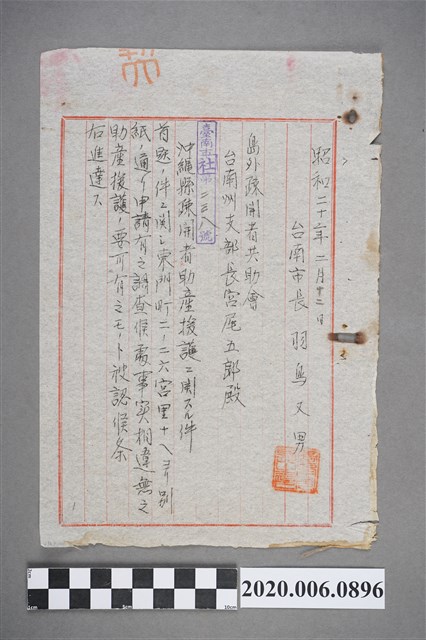 秘
昭和二十年二月廿二日
台南市長 羽鳥又男
島外疎開者共助會
台南州支部長宮尾五郎殿
臺南市社第二三八號
沖繩縣疎開者助産援護ニ関スル件
首題ノ件ニ関シ東門町二ノ二六宮里十八ヨリ別
紙ノ通リ申請有之調査候處事実相違無之
助産援護ノ要可有之モノト被認候条
右進達ス
1
1cm 5cm 10cm
2020.006.0896